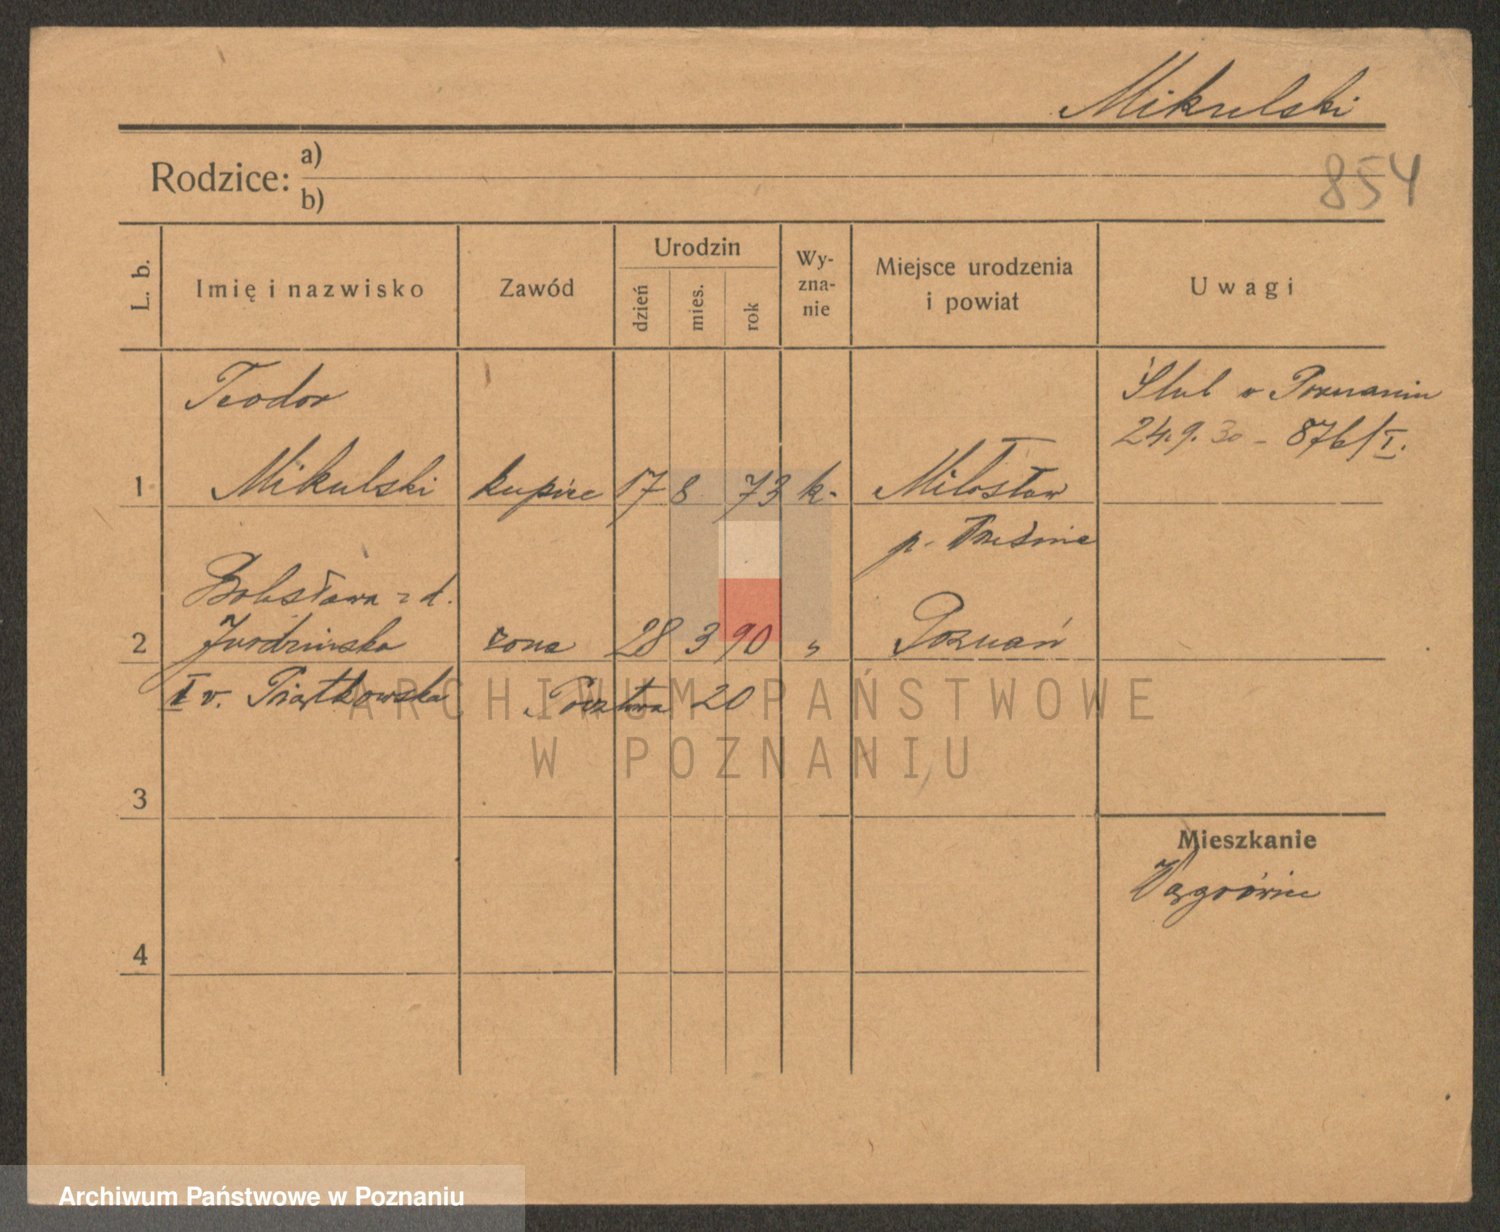 Mikulski
Rodzice: a)
b)
854
L. b.
Imię i nazwisko
Zawód
Urodzin
dzień
mies.
rok
Wy-
zna-
nie
Miejsce urodzenia
i powiat
Uwagi
Teodor
Ślub w Poznaniu
24.9.30 - 876/I.
1 Mikulski kupiec 17 8 73 k. Miłosław
p.
Bolesława z d.
2 żona 28 3 90 " Poznań
I v. Piątkowska Pocztowa 20
ARCHIWUM PAŃSTWOWE
W POZNANIU
3
Mieszkanie
Wągrówiec
4
Archiwum Państwowe w Poznaniu